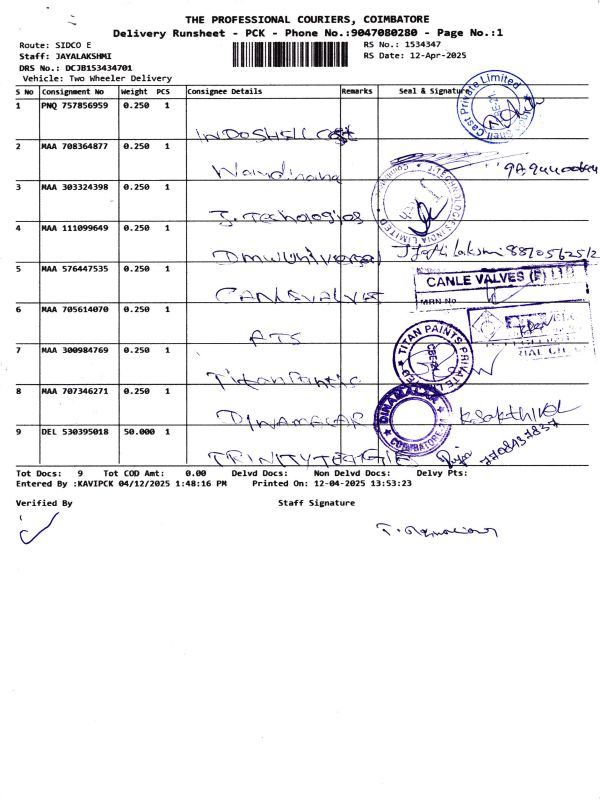 THE PROFESSIONAL COURIERS, COIMBATORE
Delivery Runsheet - PCK - Phone No.:9047080280 - Page No.:1
Route: SIDCO E
RS No.: 1534347
Staff: JAYALAKSHMI
RS Date: 12-Apr-2025
DRS No.: DCJB153434701
Vehicle: Two Wheeler Delivery
S No Consignment No Weight PCS Consignee Details Remarks Seal & Signature
1 PNQ 757856959 0.250 1
INDOSHELL Cast
2 MAA 708364877 0.250 1
3 MAA 303324398 0.250 1
J. Techologies
J-TECHNOLOGIES INDIA LIMITED
4 MAA 111099649 0.250 1
DMW Universal
5 MAA 576447535 0.250 1
CANLE VALVES (P) LTD
MRN No
CANLEVALVES
6 MAA 705614070 0.250 1
ATS
7 MAA 300984769 0.250 1
TITAN PAINTS PRIVATE
CBE-21
8 MAA 707346271 0.250 1
DINAMALAR
DINAMALAR
COIMBATORE
K. Sakthivel
9 DEL 530395018 50.000 1
7708137837
Tot Docs: 9 Tot COD Amt: 0.00 Delvd Docs: Non Delvd Docs: Delvy Pts:
Entered By :KAVIPCK 04/12/2025 1:48:16 PM Printed On: 12-04-2025 13:53:23
Verified By Staff Signature